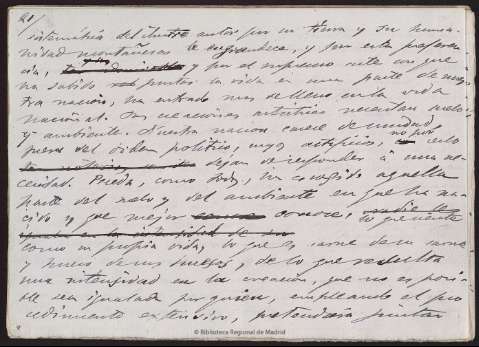 21/
sistemático del ilustre autor por su tierra y su huma-
nidad montañeras le engrandece, y por esta preferen-
cia, y por el supremo arte con que
ha sabido pintar la vida en una parte de nues-
tra nación, ha entrado mas de lleno en la vida
nacional. Las creaciones artisticas necesitan suelo
y ambiente. Nuestra nacion carece de unidad
fuera del órden politico, cuyos artificios, no por
serlo dejan de responder á una ne-
cesidad. Pereda, como todos, ha escogido aquella
parte del suelo y del ambiente en que ha na-
cido y que mejor conoce, lo que siente
como su propia vida, lo que es carne de su carne
y hueso de sus huesos, de lo que resulta
una intensidad en la creacion, que no es posi-
ble sea igualada por quien, empleando el pro
cedimiento extensivo, pretendiera pintar
© Biblioteca Regional de Madrid